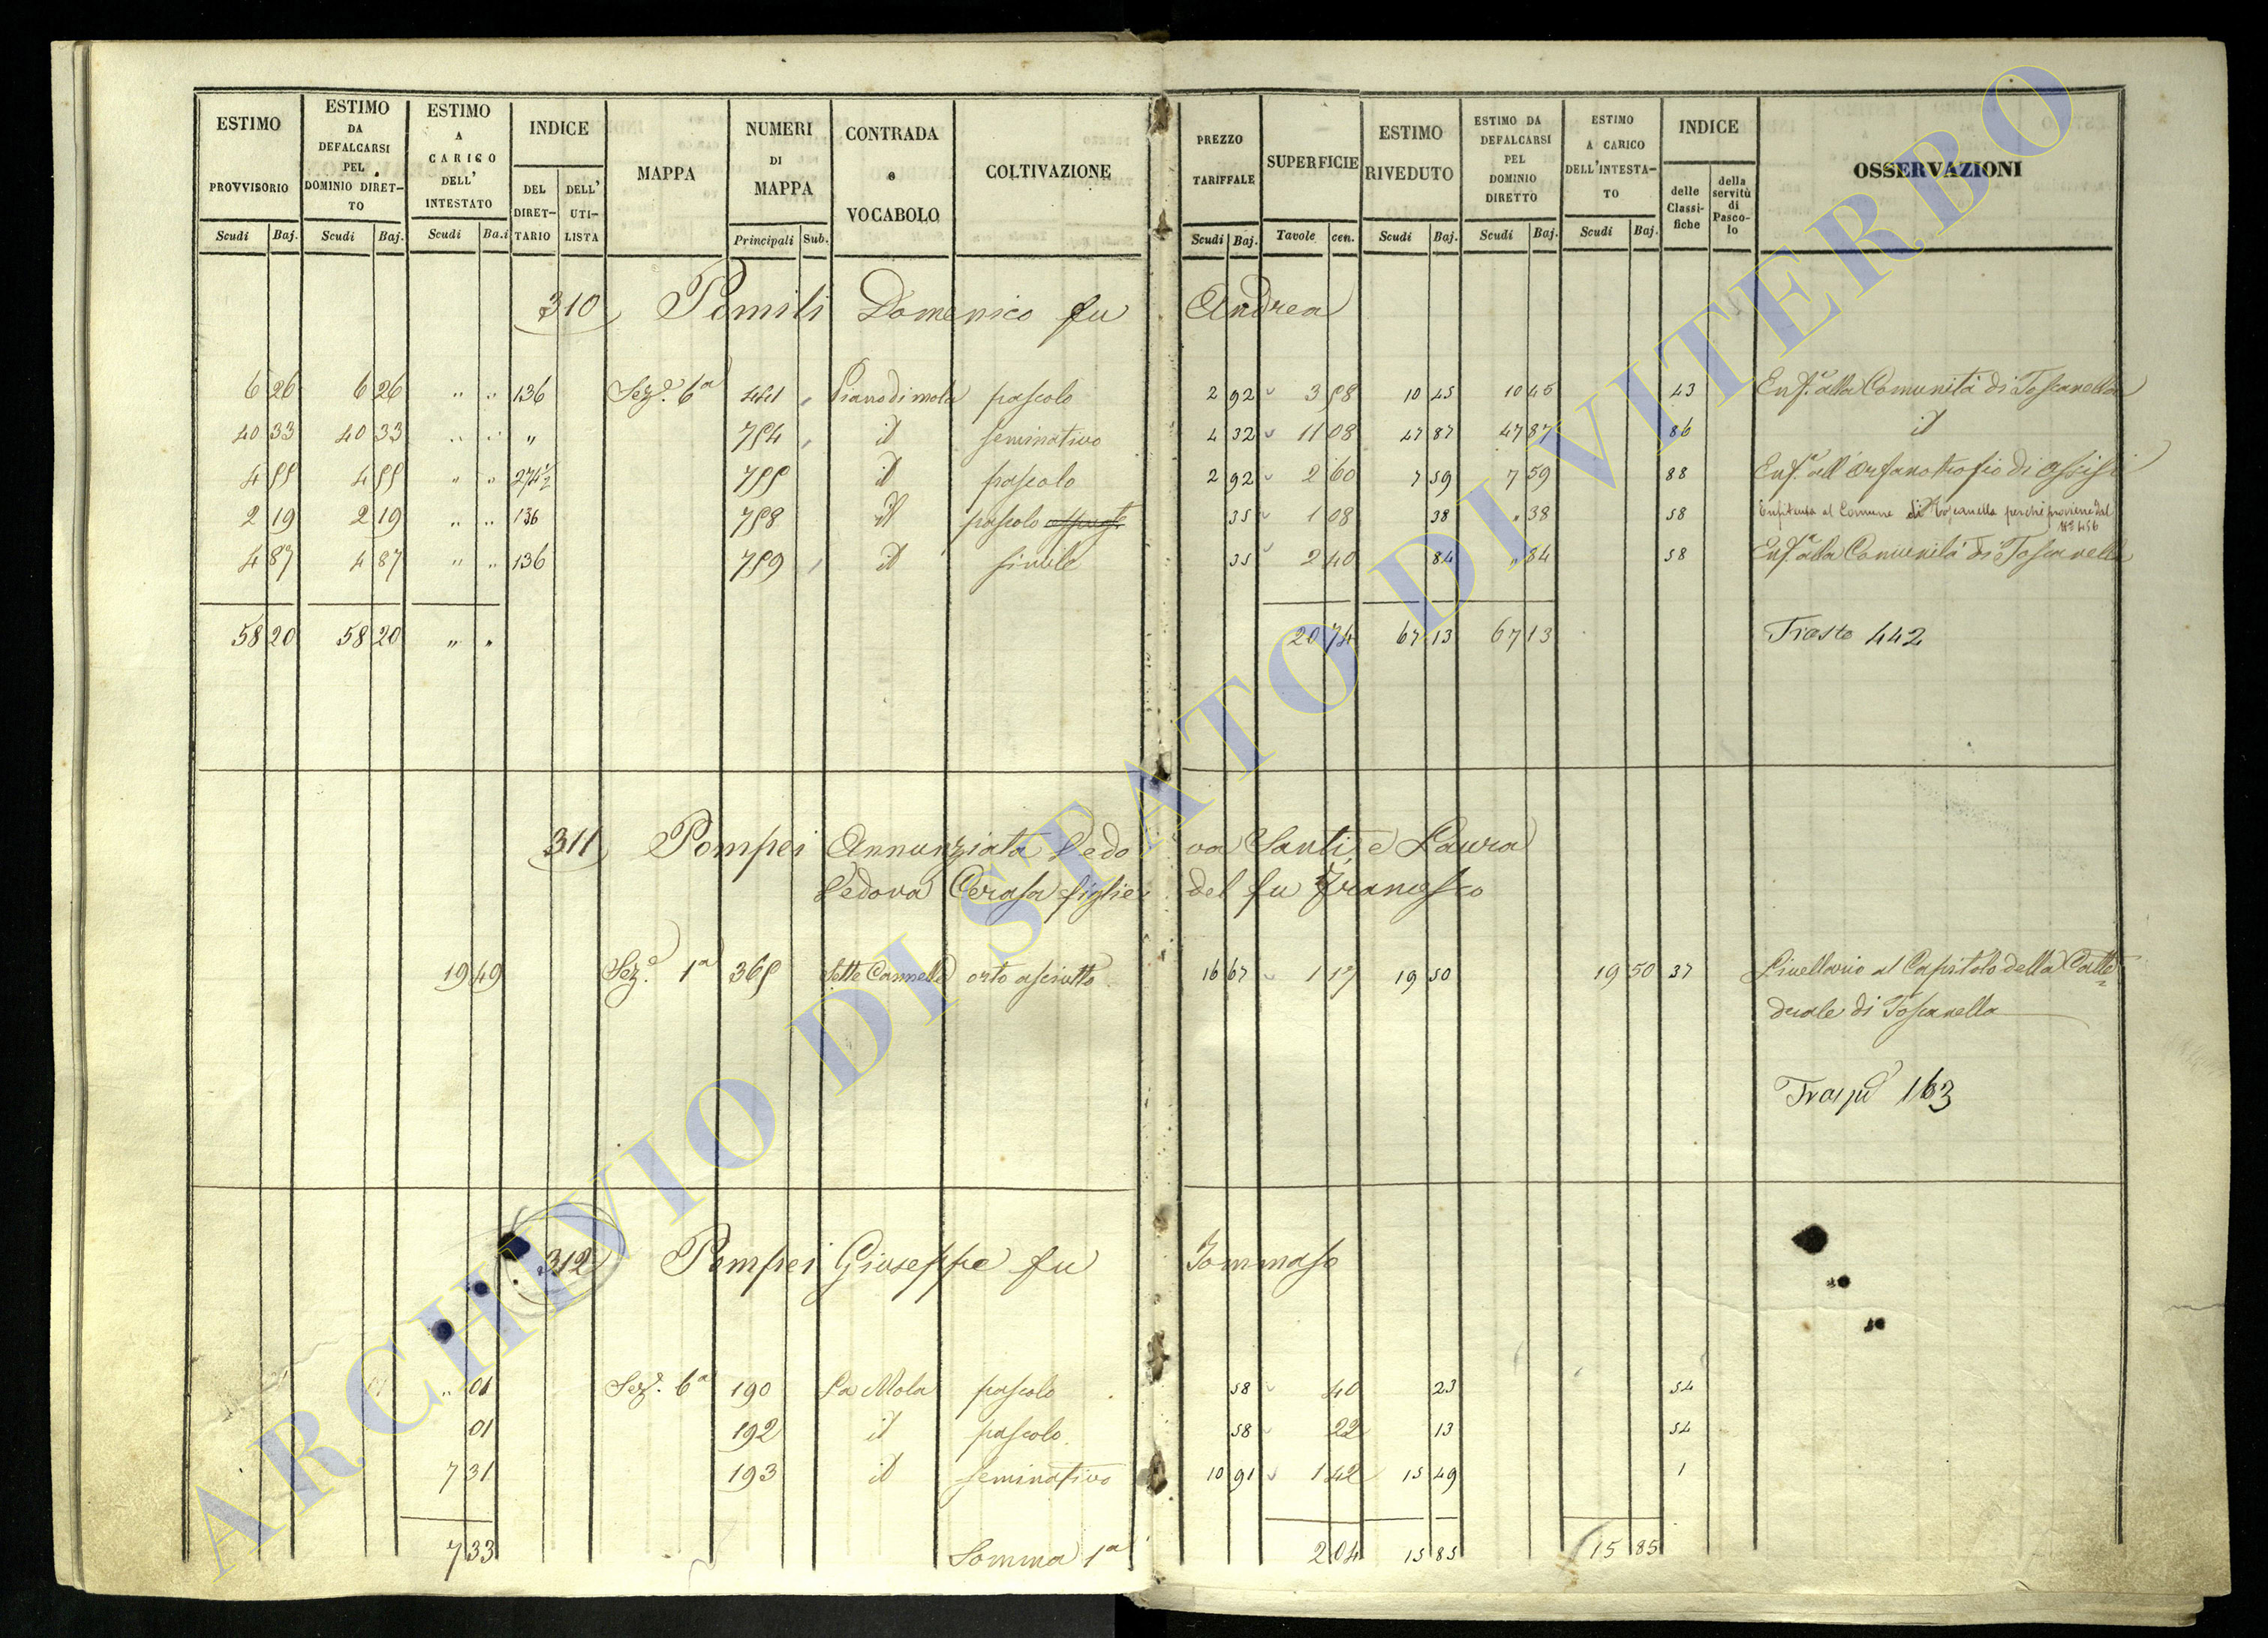 ESTIMO PROVVISORIO Scudi Baj.
ESTIMO DA DEFALCARSI PEL DOMINIO DIRET- TO Scudi Baj.
ESTIMO A CARICO DELL' INTESTATO Scudi Ba.i
INDICE DEL DIRET- TARIO DELL' UTI- LISTA
MAPPA
NUMERI DI MAPPA Principali Sub.
CONTRADA e VOCABOLO
COLTIVAZIONE
PREZZO TARIFFALE Scudi Baj.
SUPERFICIE Tavole cen.
ESTIMO RIVEDUTO Scudi Baj.
ESTIMO DA DEFALCARSI PEL DOMINIO DIRETTO Scudi Baj.
ESTIMO A CARICO DELL'INTESTA- TO Scudi Baj.
INDICE delle Classi- fiche della servitù di Pasco- lo
OSSERVAZIONI
310 Pomili Domenico fu Andrea
6 26 6 26 " " 136 Sez.e 6a 441 Piano di mola pascolo 2 92 3 58 10 45 10 45 43 Enf.a alla Comunità di Toscanella
40 33 40 33 " " " 754 id seminativo 4 32 11 08 47 87 47 87 86 id
4 55 4 55 " " 274½ 755 id pascolo 2 92 2 60 7 59 7 59 88 Enf.a all'Orfanotrofio di Assisi
2 19 2 19 " " 136 758 id pascolo 35 1 08 38 " 38 58 Enfiteusi al Comune di Toscanella perchè proviene dal N° 456
4 87 4 87 " " 136 759 id simile 35 2 40 84 " 84 58 Enf.a alla Comunità di Toscanella
58 20 58 20 " " 20 74 67 13 67 13 Trasto 442
311 Pompei Annunziata Vedova Santi, e Laura
Vedova Cerasa figlie del fu Francesco
19 49 Sez.e 1a 365 Sette Cannelle orto asciutto 16 67 1 17 19 50 19 50 37 Livellario al Capitolo della Catte=
drale di Toscanella
Trasp.to 163
312 Pompei Giuseppe fu Tommaso
" 01 Sez.e 6a 190 La Mola pascolo 58 40 23 54
01 192 id pascolo 58 22 13 54
7 31 193 id seminativo 10 91 1 42 15 49 1
7 33 Somma 1a 2 04 15 85 15 85
ARCHIVIO DI STATO DI VITERBO